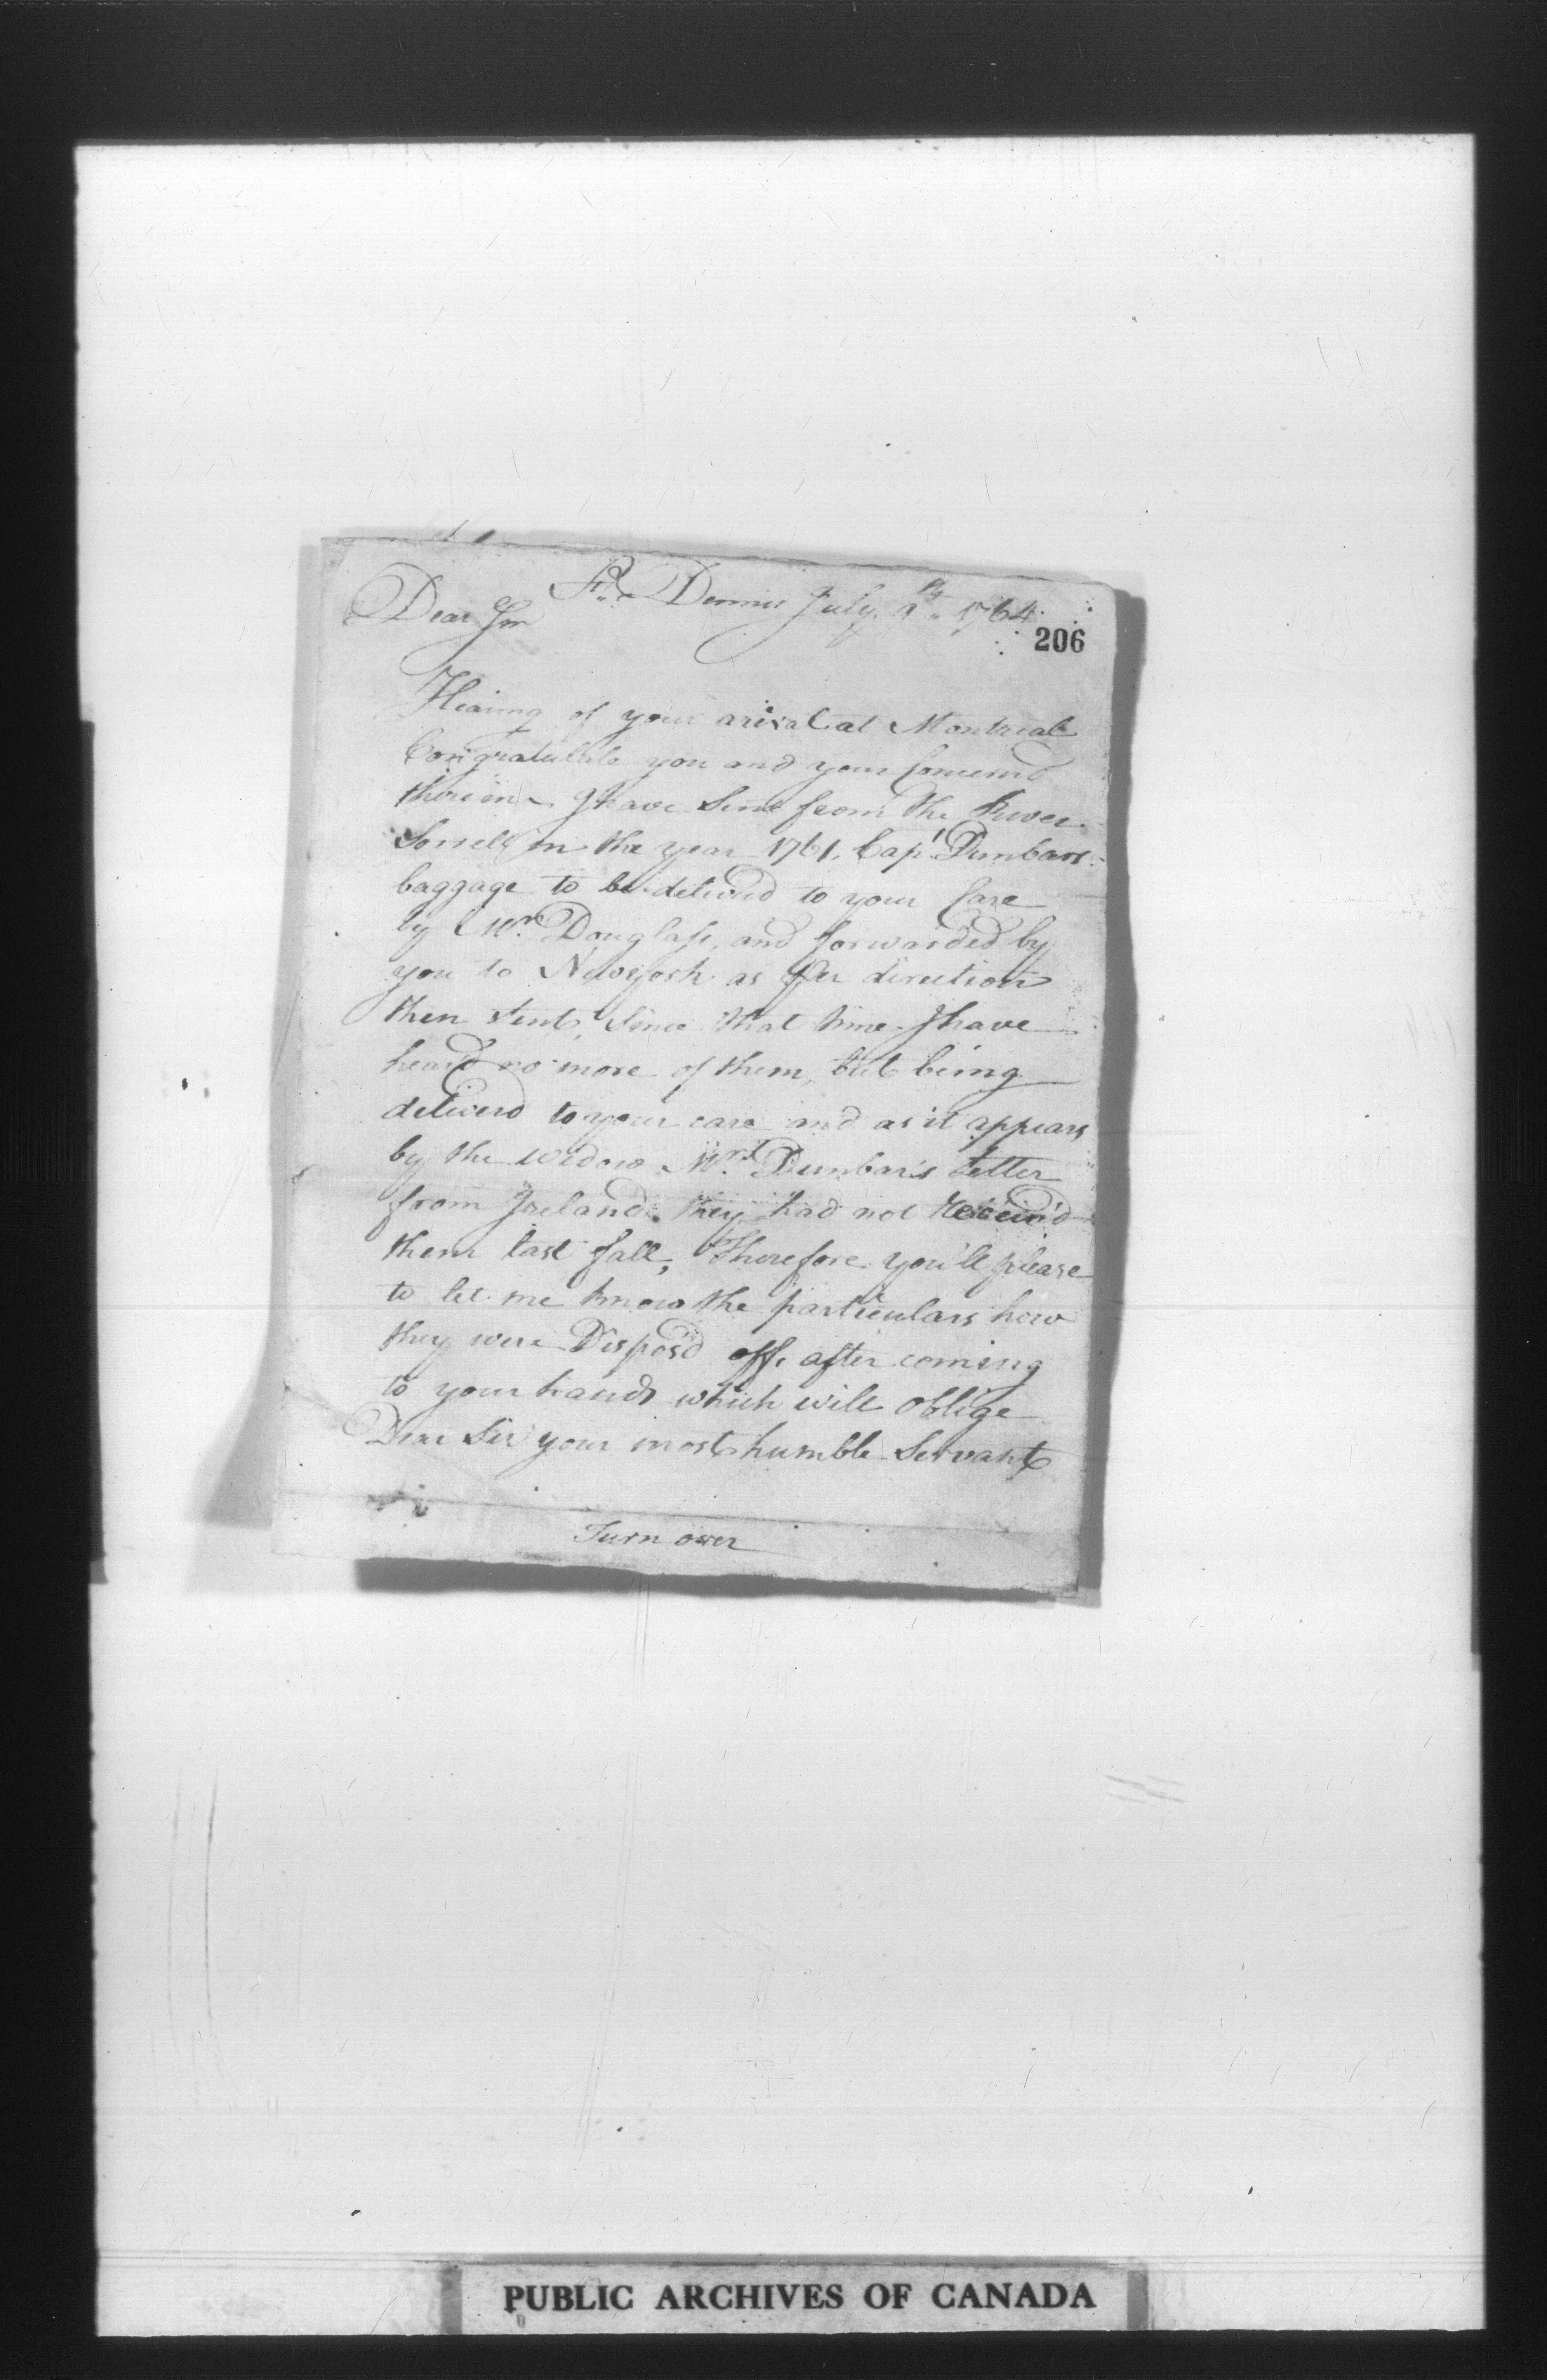 St Dennis July 9th 1764
Dear Sir
206
Hearing of your arival at Montreal
Congratulate you and your Concernd
thereon I have Sent from the River
Sorrell in the year 1761, Capt Dunbars
baggage to be deliverd to your Care
by Mr Douglass, and forwarded by
you to Newyork as Per direction
then sent, Since that time I have
heard no more of them, but being
deliverd to your care and as it appears
by the widow Mrs Dunbar's Letter
from Ireland they had not Receiv'd
them last fall, therefore you'll please
to let me know the particulars how
they were Dispos'd off, after coming
to your hands which will Oblige
Dear Sir your most humble Servant
Turn over
PUBLIC ARCHIVES OF CANADA